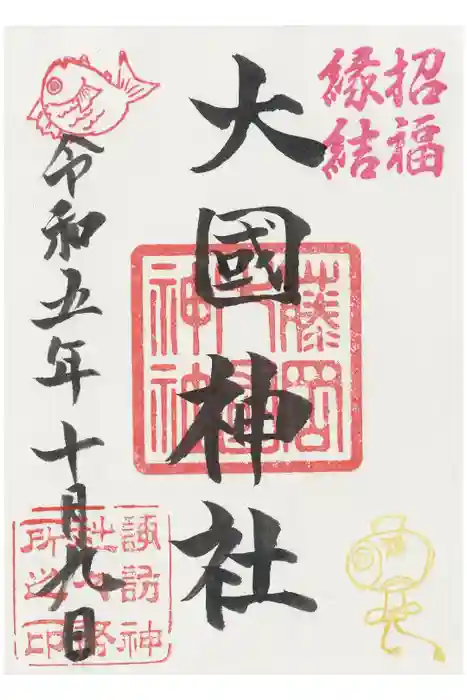 招福
縁結
大國神社
令和五年十月九日
諏訪神
社社務
所之印